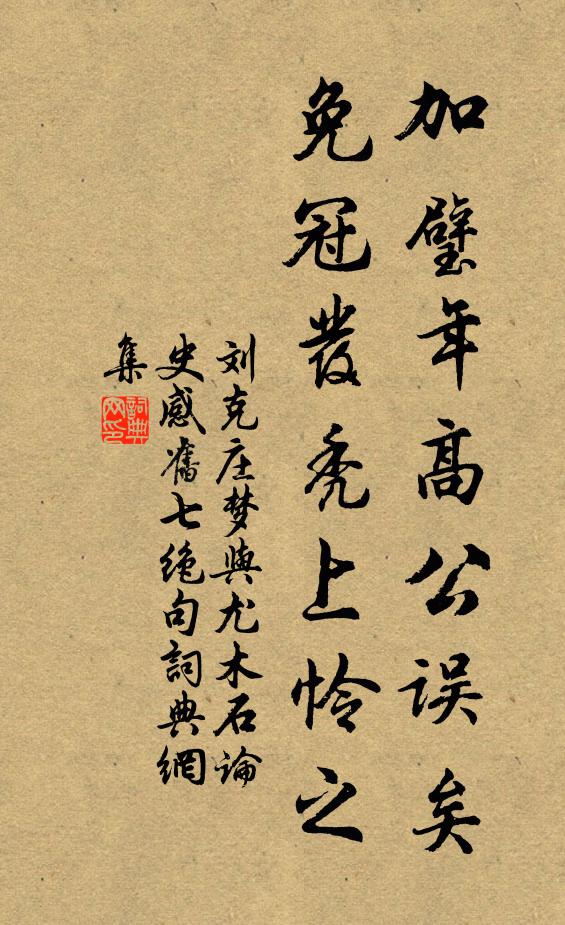 加璧年高公误矣
免冠發秃上怜之
刘克庄梦與尤木石論
史感奮七绝句詞典網
集
詞典
网印